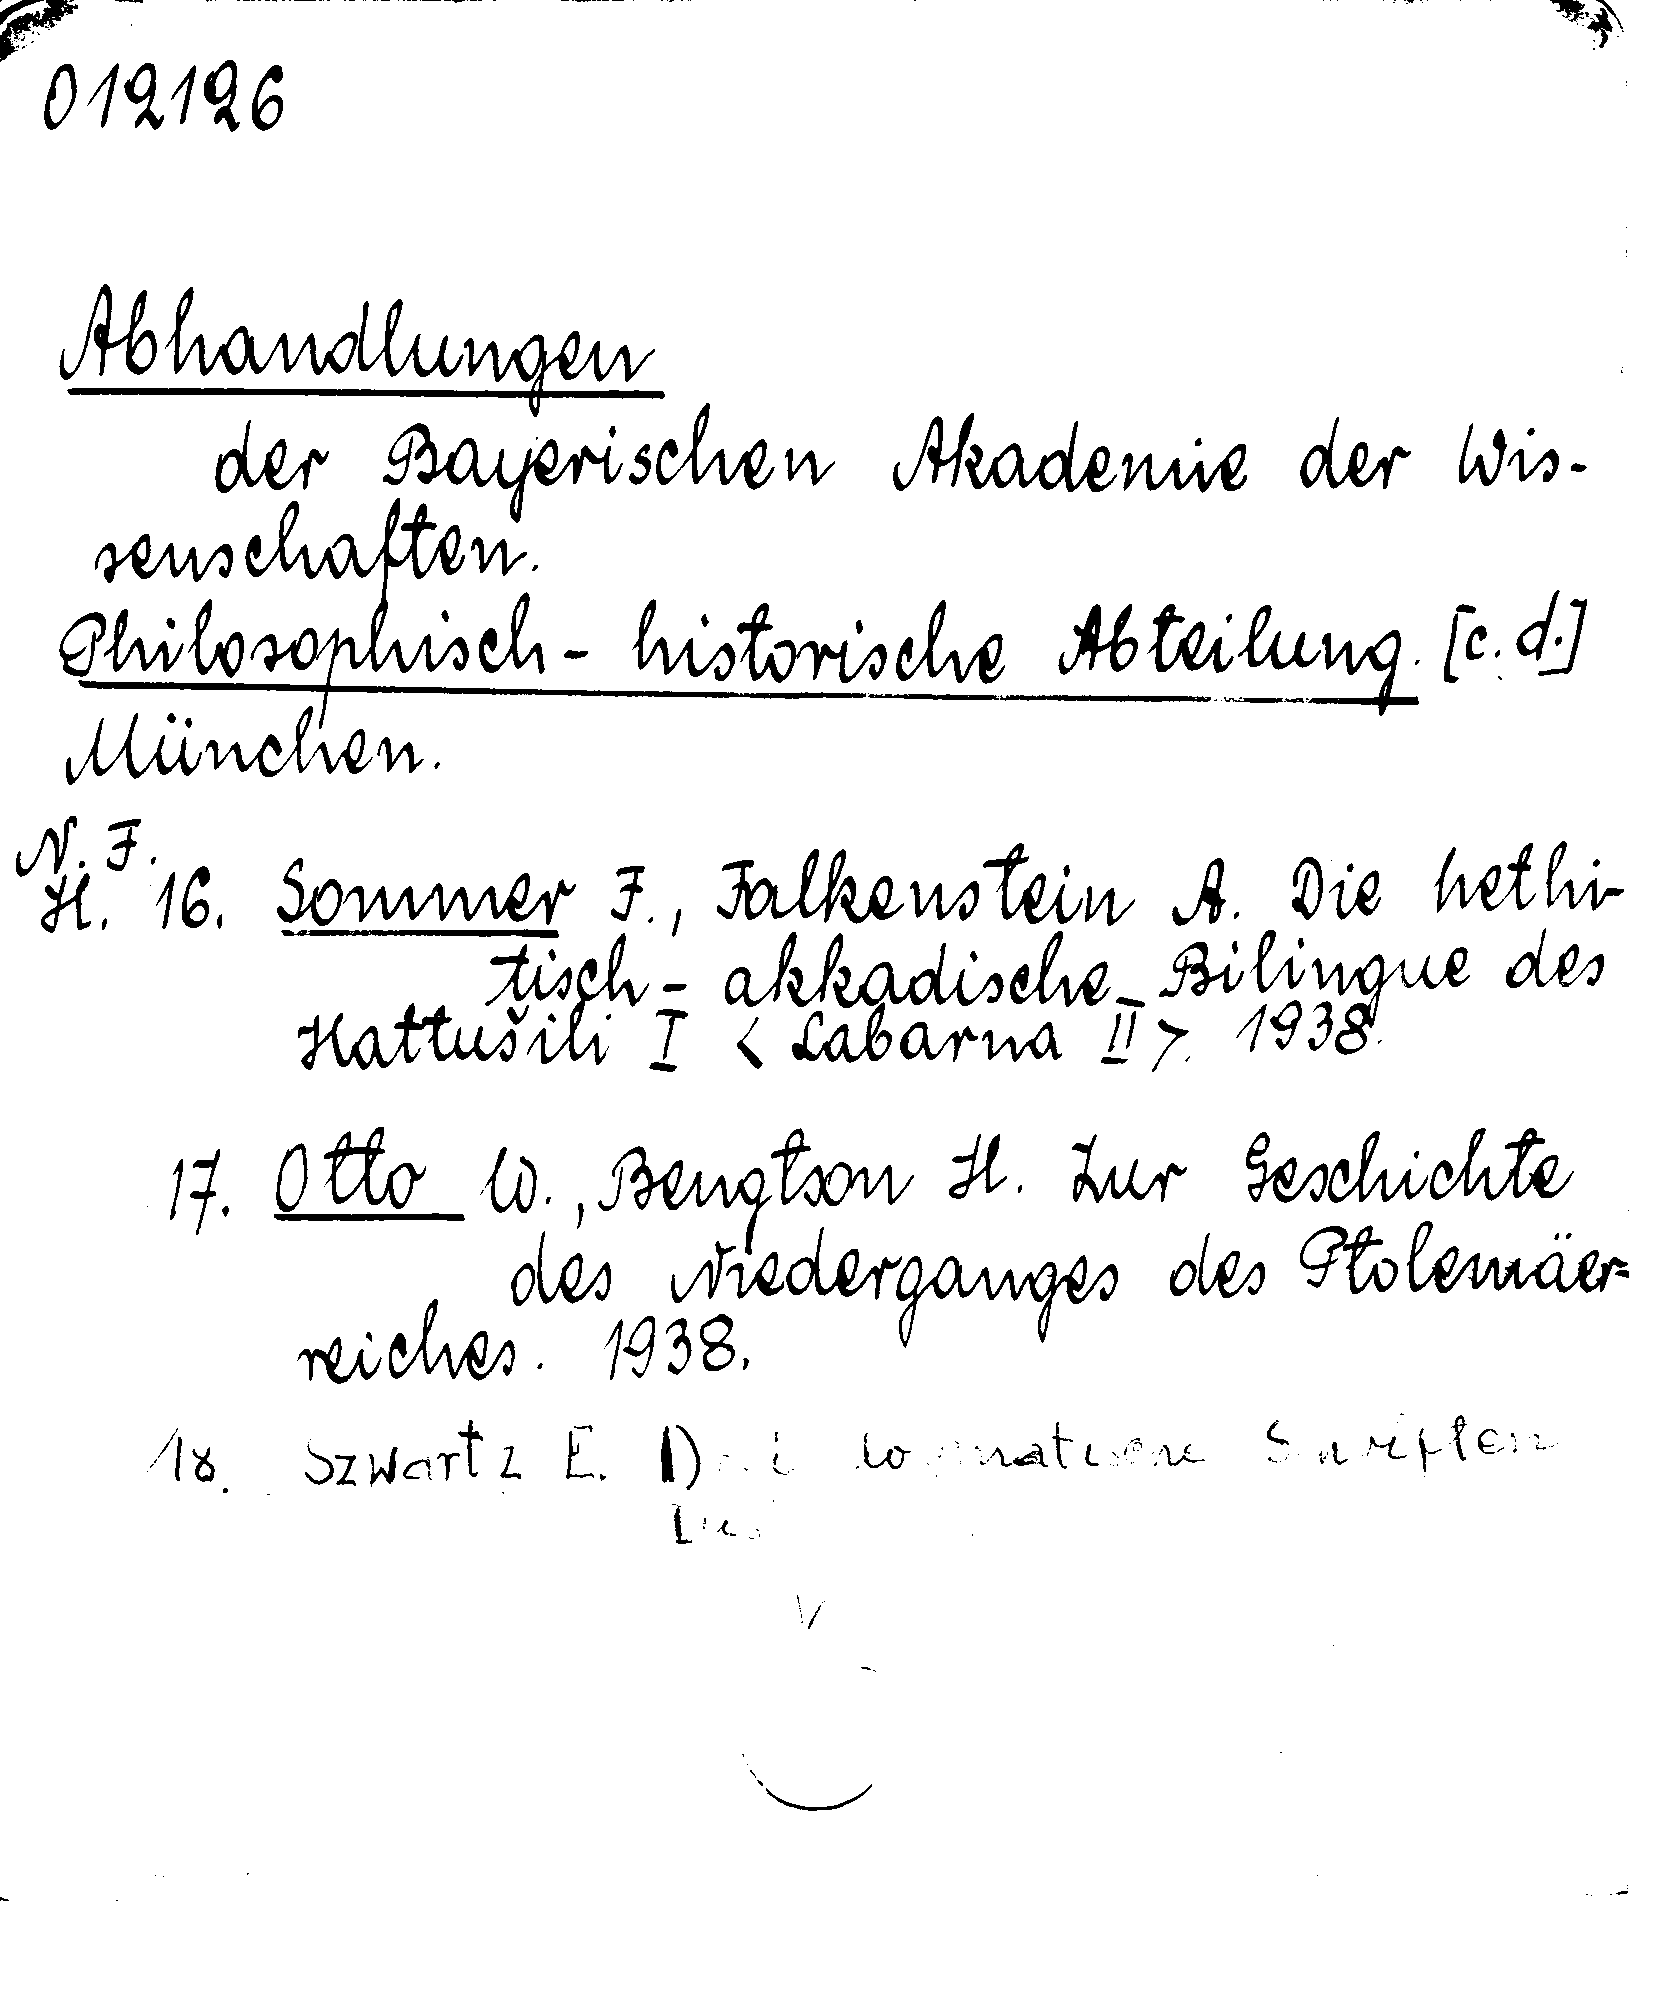 012126
Abhandlungen
der Bayerischen Akademie der Wis-
senschaften.
Philosophisch-historische Abteilung. [c.d.]
München.
N. F.
H. 16. Sommer F., Falkenstein A. Die hethi-
tisch-akkadische Bilingue des
Hattušili I < Labarna II >. 1938.
17. Otto W., Bengtson H. Zur Geschichte
des Niederganges des Ptolemäer-
reiches. 1938.
18. Szwartz E. Schriften